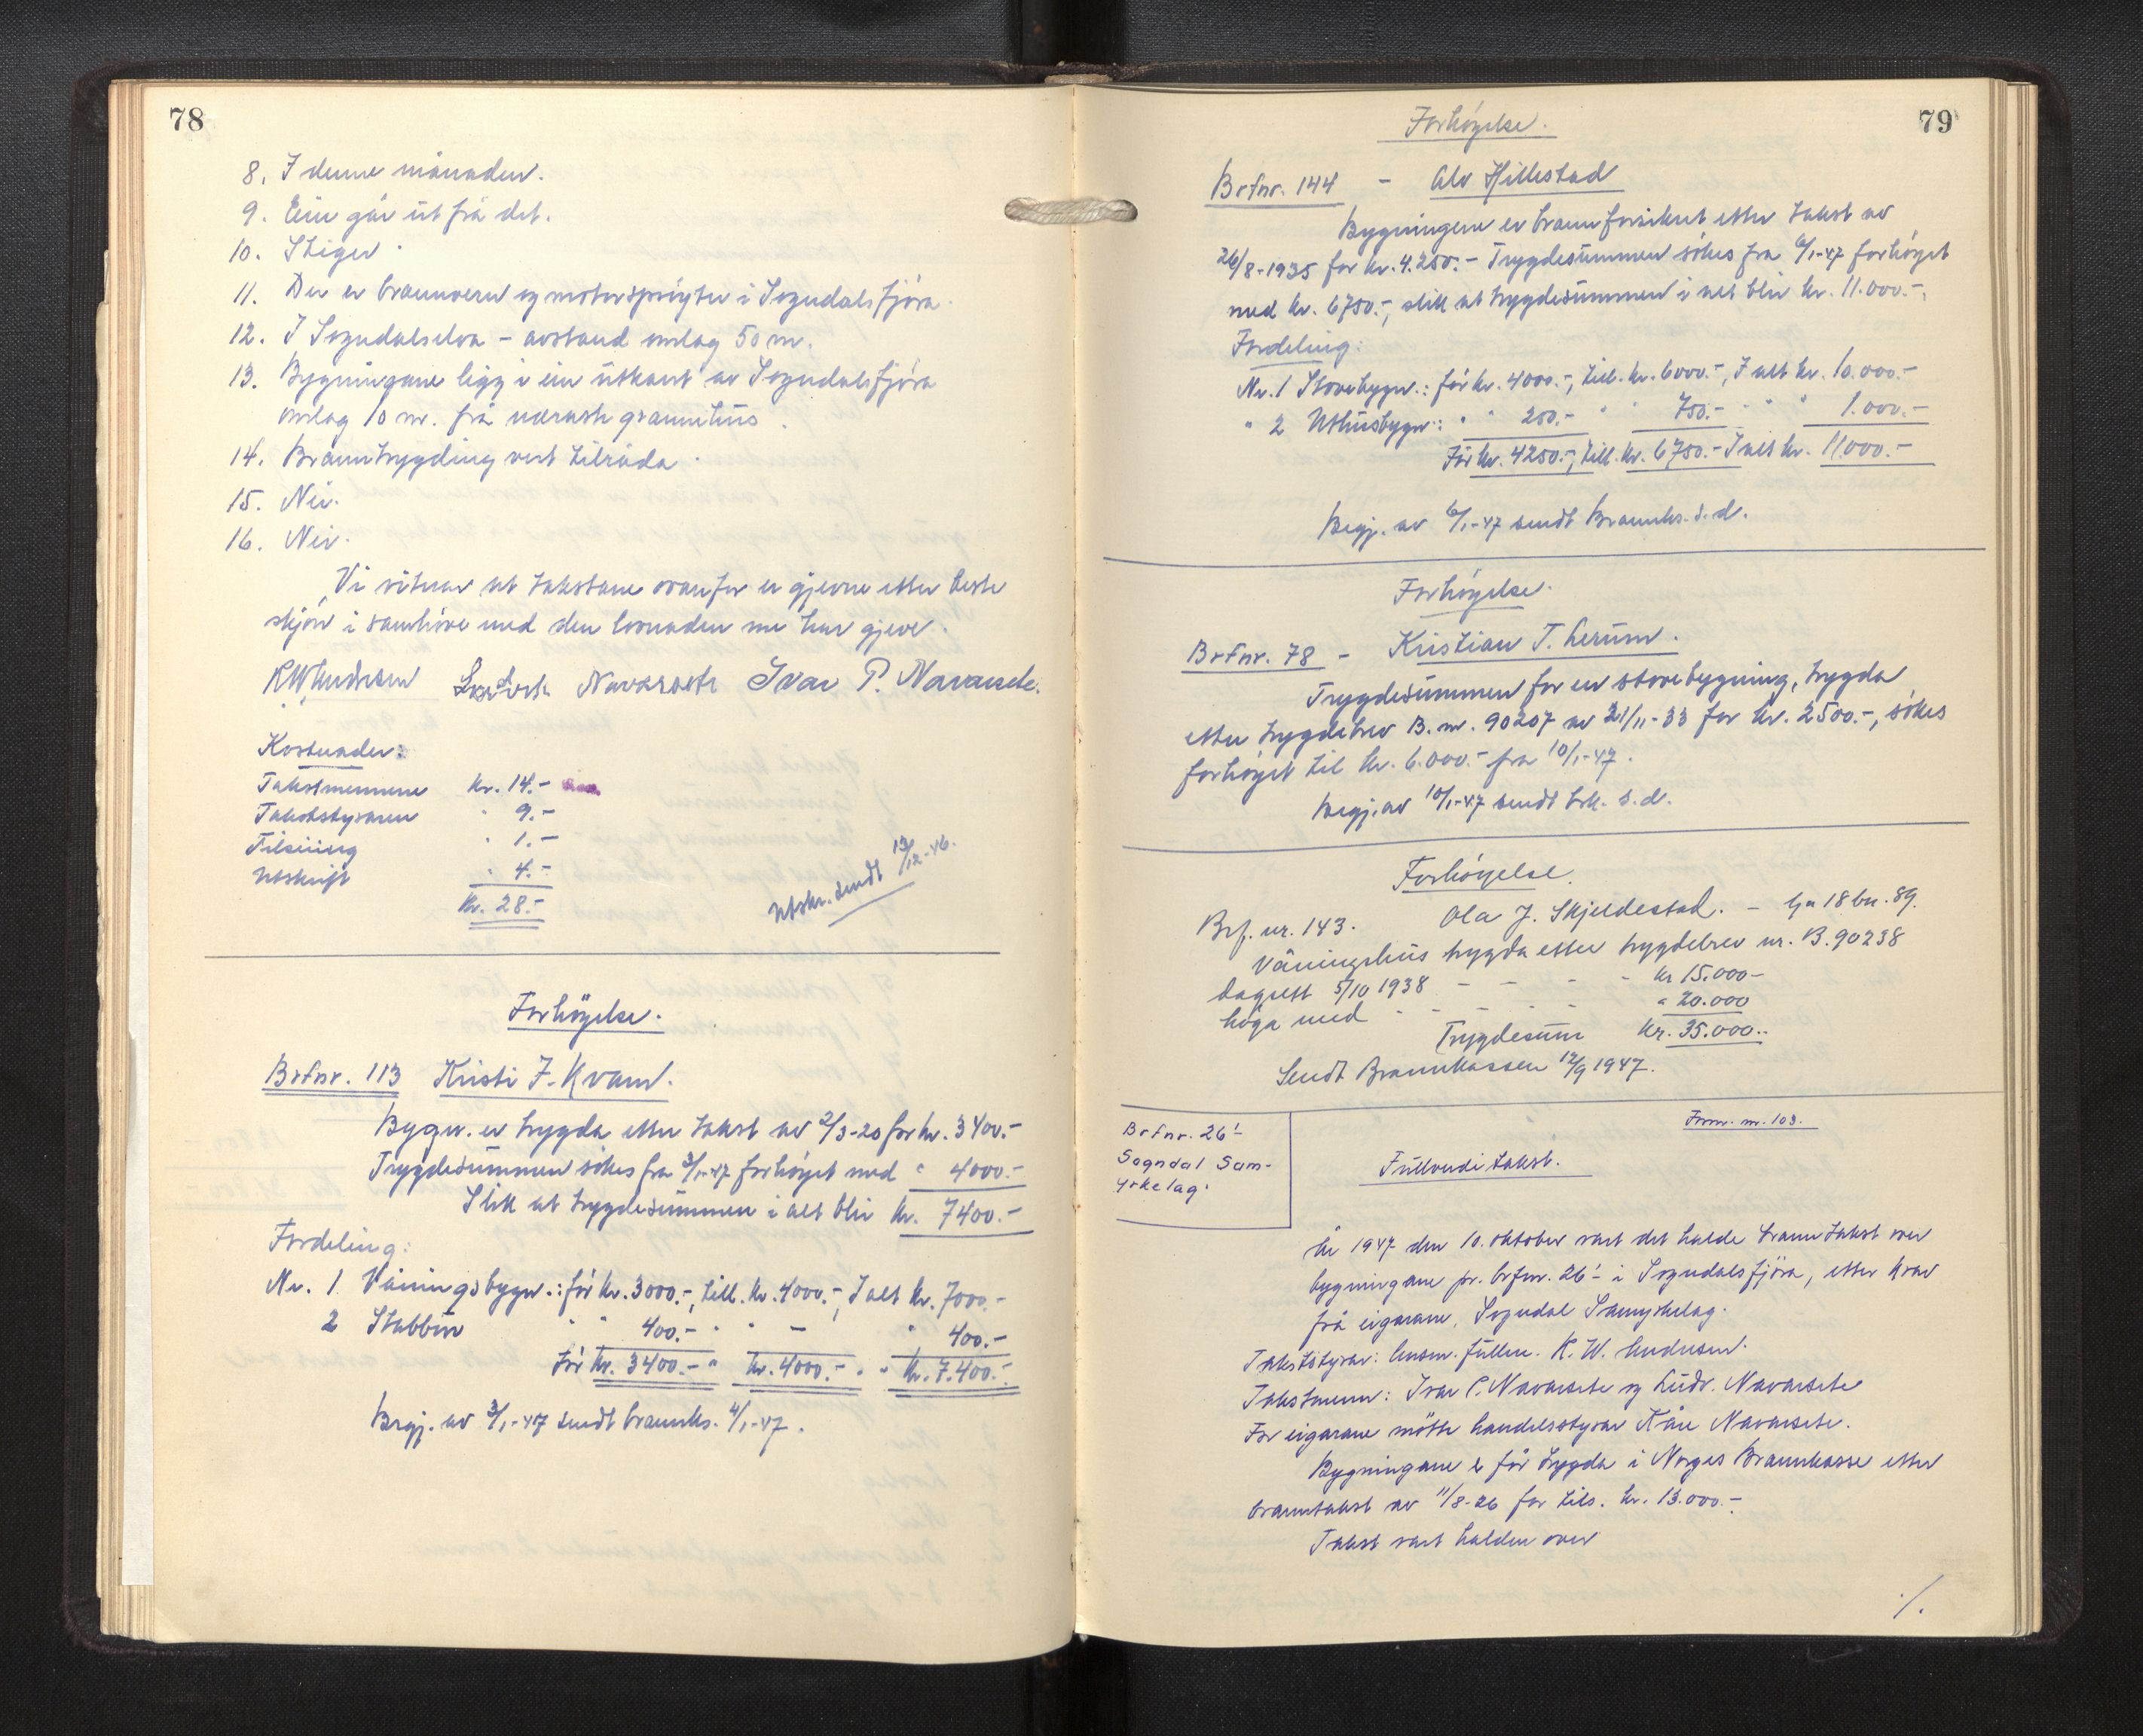 78
8. I denne månaden.
9. Ein går ut frå det.
10. Stiger.
11. Der er brannvern og motorsprøyter i Sogndalsfjøra.
12. I Sogndalselva - avstand omlag 50 m.
13. Bygningane ligg i ein utkant av Sogndalsfjøra
omlag 10 m. frå næraste grannehus.
14. Branntrygding vert tilråda.
15. Nei.
16. Nei.
Vi vitnar at takstane ovanfor er gjevne etter beste
skjøn i samhøve med den lovnaden me har gjeve.
Navarsete Ivar P. Navarsete.
Kostnader:
Takstmennene kr. 14.-
Takststyraren " 9.-
Tilsining " 1.-
Utskrift " 4.-
Kr. 28.-
Utskr. sendt 13/12-46.
Forhøyelse.
Brfnr. 113 Kristi J. Kvam.
Bygn. er trygda etter takst av 2/3-20 for kr. 3400.-
Trygdesummen søkes fra 3/1-47 forhøyet med " 4000.-
Slik at trygdesummen i alt blir kr. 7400.-
Fordeling:
Nr. 1 Våningsbygn.: før kr. 3000.-, till. kr. 4000.-, I alt kr. 7000.-
2 Stabbur " " 400.- " " - " 400.-
Før kr. 3400.- " kr. 4000.- " " kr. 7.400.-
Begj. av 3/1-47 sendt brannks. 4/1-47.
79
Forhøyelse.
Brfnr. 144 - Alv Hillestad
Bygningene er brannforsikret etter takst av
26/8-1935 for kr. 4.250.- Trygdesummen søkes fra 6/1-47 forhøyet
med kr. 6750.-, slik at trygdesummen i alt blir kr. 11.000.-.
Fordeling:
Nr. 1 Stovebygn.: før kr. 4000.-, till. kr. 6000.-, I alt kr. 10.000.-
" 2 Uthusbygn.: " " 250.- " " 750.- " " " 1.000.-
Før kr. 4250.-, till. kr. 6750.- I alt kr. 11000.-
Begj. av 6/1-47 sendt Brannks. s.d.
Forhøyelse.
Brfnr. 78 - Kristian T. Lerum.
Trygdesummen for en stovebygning, trygda
etter trygdebrev B. nr. 90207 av 21/11-33 for kr. 2500.-, søkes
forhøyet til kr. 6.000.- fra 10/1-47.
Begj. av 10/1-47 sendt brk. s.d.
Forhöyelse.
Brf. nr. 143. Ola J. Skjeldestad. - Gn 18 bn. 89.
Våningshus trygda etter trygdebrev nr. B.90238
dagsett 5/10 1938 - - - - kr 15.000-
høga med - - - - " 20.000
Trygdesum kr. 35.000.-
Sendt Brannkassen 12/9 1947.
Brfnr. 26¹
Sogndal Sam-
yrkelag.
Form. nr. 103.
Fullverditakst.
År 1947 den 10. oktober vart det halde branntakst over
bygningane pr. brfnr. 26¹ i Sogndalsfjøra, etter krav
frå eigarane, Sogndal Samyrkelag.
Takststyrar: lensm. fullm. K. W.
Takstmenn: Ivar P. Navarsete og Ludv. Navarsete
For eigarane møtte handelsstyrar Kåre Navarsete.
Bygningane er før trygda i Norges Brannkasse etter
branntakst av 11/8-26 for tils. kr. 13.000.-
Takst vart halden over
./.